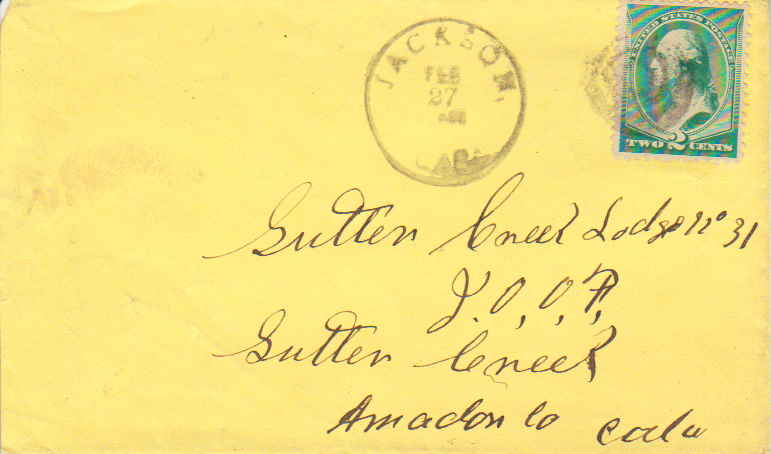 UNITED STATES POSTAGE
TWO 2 CENTS
JACKSON,
FEB
27
Sutter Creek Lodge No 31
I.O.O.F,
Sutter Creek
Amador Co Cala